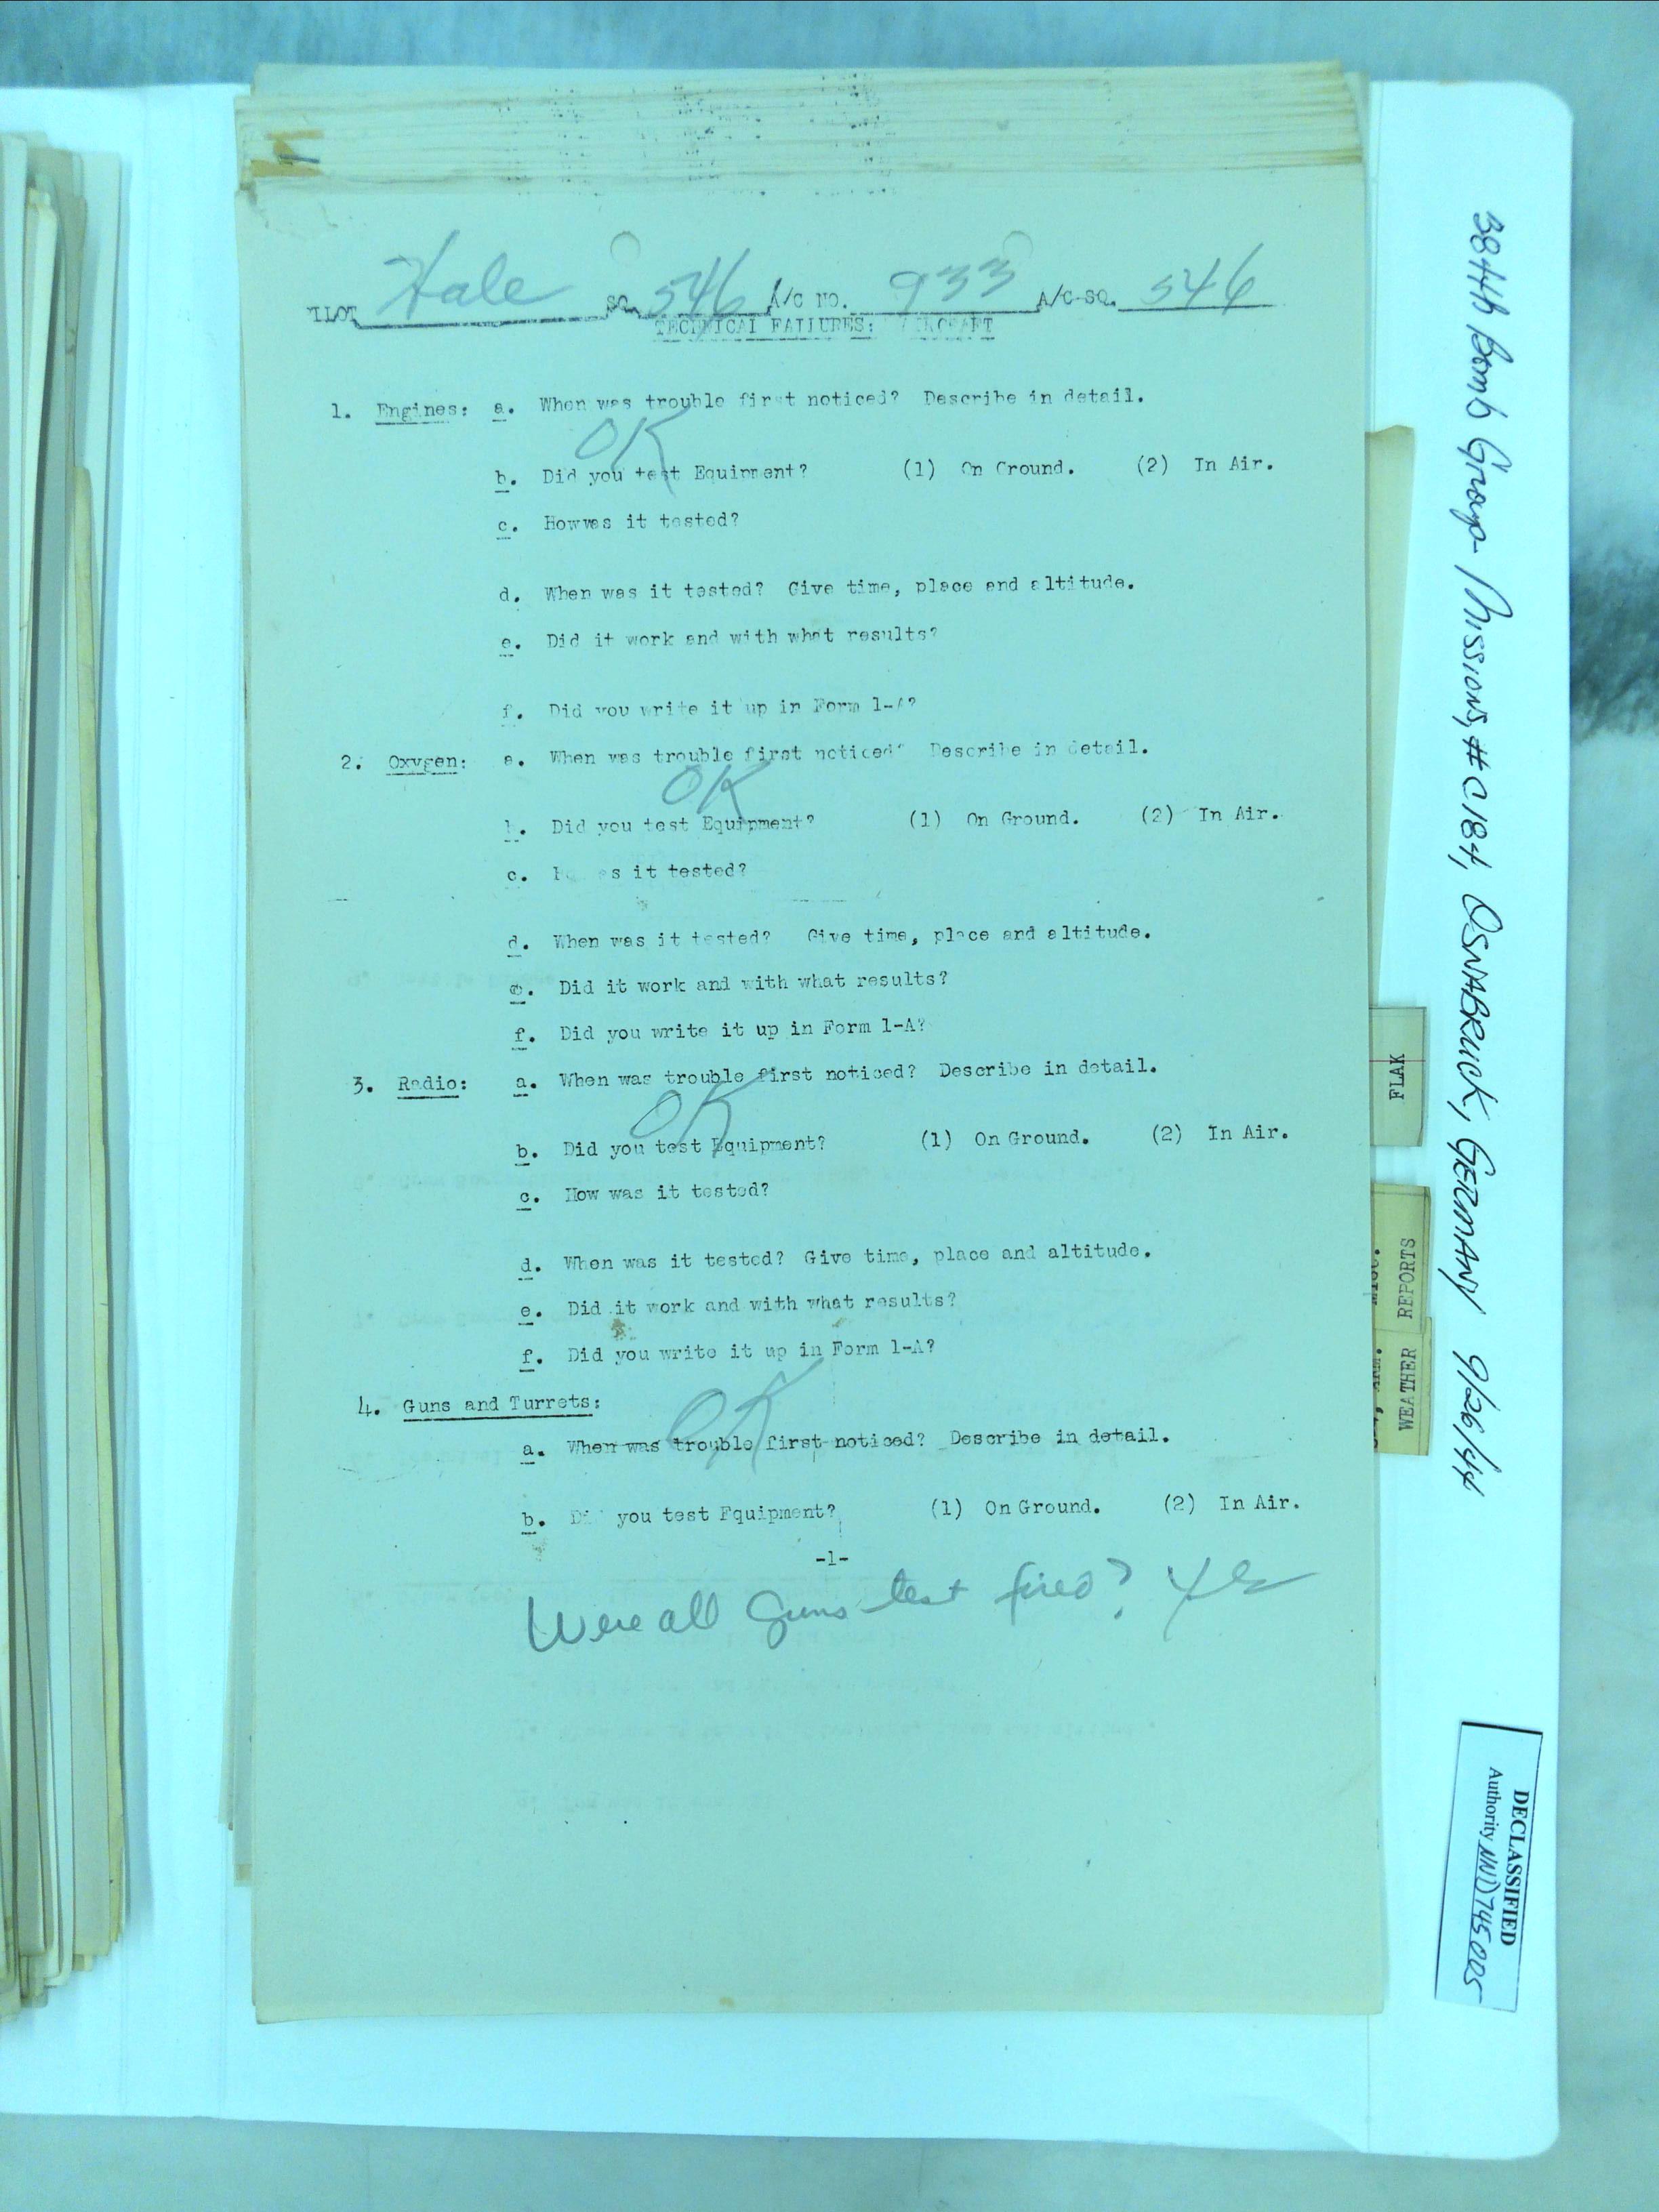 Hale SQ. 546 A/C NO. 933 A/C-SQ. 546
TECHNICAL FAILURES: AIRCRAFT
1. Engines: a. When was trouble first noticed? Describe in detail.
OK
b. Did you test Equipment? (1) On Ground. (2) In Air.
c. How was it tested?
d. When was it tested? Give time, place and altitude.
e. Did it work and with what results?
f. Did you write it up in Form 1-A?
2. Oxygen: a. When was trouble first noticed? Describe in detail.
OK
b. Did you test Equipment? (1) On Ground. (2) In Air.
c. it tested?
d. When was it tested? Give time, place and altitude.
e. Did it work and with what results?
f. Did you write it up in Form 1-A?
3. Radio: a. When was trouble first noticed? Describe in detail.
OK
b. Did you test Equipment? (1) On Ground. (2) In Air.
c. How was it tested?
d. When was it tested? Give time, place and altitude.
e. Did it work and with what results?
f. Did you write it up in Form 1-A?
4. Guns and Turrets:
OK
a. When was trouble first noticed? Describe in detail.
b. Did you test Equipment? (1) On Ground. (2) In Air.
-1-
Were all guns test fired? Yes
384th Bomb Group - Missions, #C184, OSNABRUCK, GERMANY 9/26/44
FLAK
REPORTS
WEATHER
DECLASSIFIED
Authority NND745005